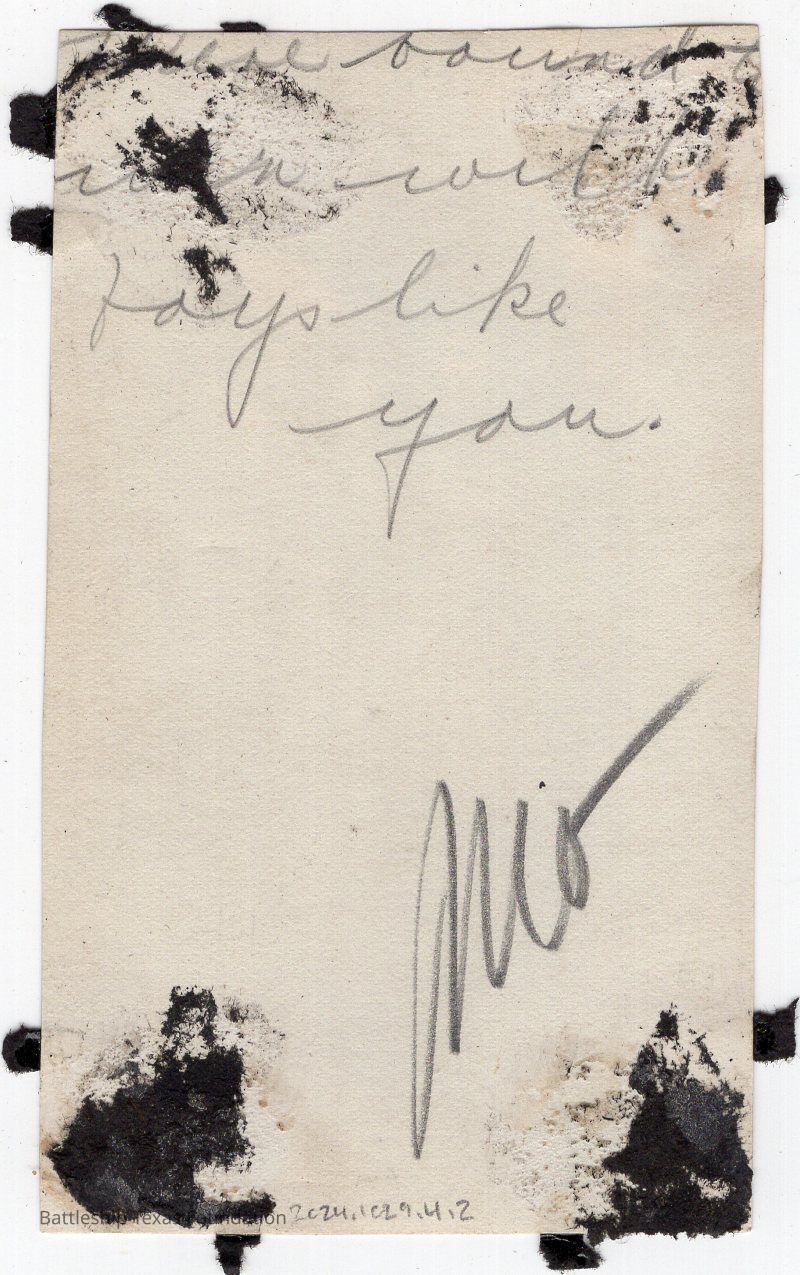 we're bound to
win with
boys like
you.
Mo
Battleship Texas Foundation 2024.1029.4.2